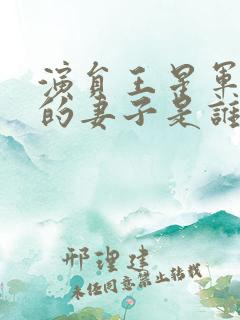 演員王星軍
的妻子是誰
邢理建
未经同意禁止转载